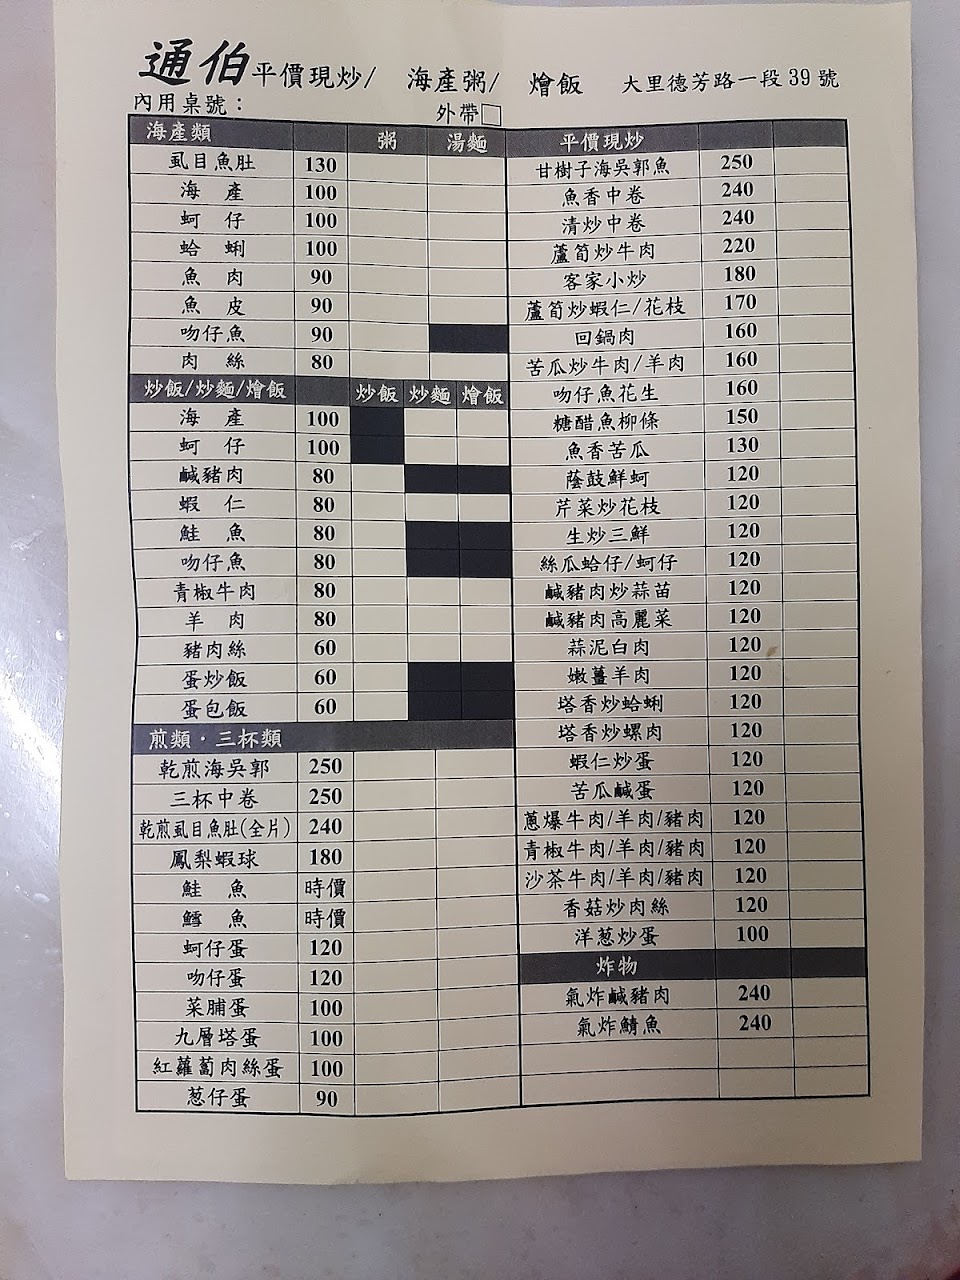 通伯平價現炒/ 海產粥/ 燴飯 大里德芳路一段39號
內用桌號：
外帶□
海產類 粥 湯麵
虱目魚肚 130
海產 100
蚵仔 100
蛤蜊 100
魚肉 90
魚皮 90
吻仔魚 90
肉絲 80
炒飯/炒麵/燴飯 炒飯 炒麵 燴飯
海產 100
蚵仔 100
鹹豬肉 80
蝦仁 80
鮭魚 80
吻仔魚 80
青椒牛肉 80
羊肉 80
豬肉絲 60
蛋炒飯 60
蛋包飯 60
煎類·三杯類
乾煎海吳郭 250
三杯中卷 250
乾煎虱目魚肚(全片) 240
鳳梨蝦球 180
鮭魚 時價
鱈魚 時價
蚵仔蛋 120
吻仔蛋 120
菜脯蛋 100
九層塔蛋 100
紅蘿蔔肉絲蛋 100
葱仔蛋 90
平價現炒
甘樹子海吳郭魚 250
魚香中卷 240
清炒中卷 240
蘆筍炒牛肉 220
客家小炒 180
蘆筍炒蝦仁/花枝 170
回鍋肉 160
苦瓜炒牛肉/羊肉 160
吻仔魚花生 160
糖醋魚柳條 150
魚香苦瓜 130
蔭鼓鮮蚵 120
芹菜炒花枝 120
生炒三鮮 120
絲瓜蛤仔/蚵仔 120
鹹豬肉炒蒜苗 120
鹹豬肉高麗菜 120
蒜泥白肉 120
嫩薑羊肉 120
塔香炒蛤蜊 120
塔香炒螺肉 120
蝦仁炒蛋 120
苦瓜鹹蛋 120
蔥爆牛肉/羊肉/豬肉 120
青椒牛肉/羊肉/豬肉 120
沙茶牛肉/羊肉/豬肉 120
香菇炒肉絲 120
洋葱炒蛋 100
炸物
氣炸鹹豬肉 240
氣炸鯖魚 240